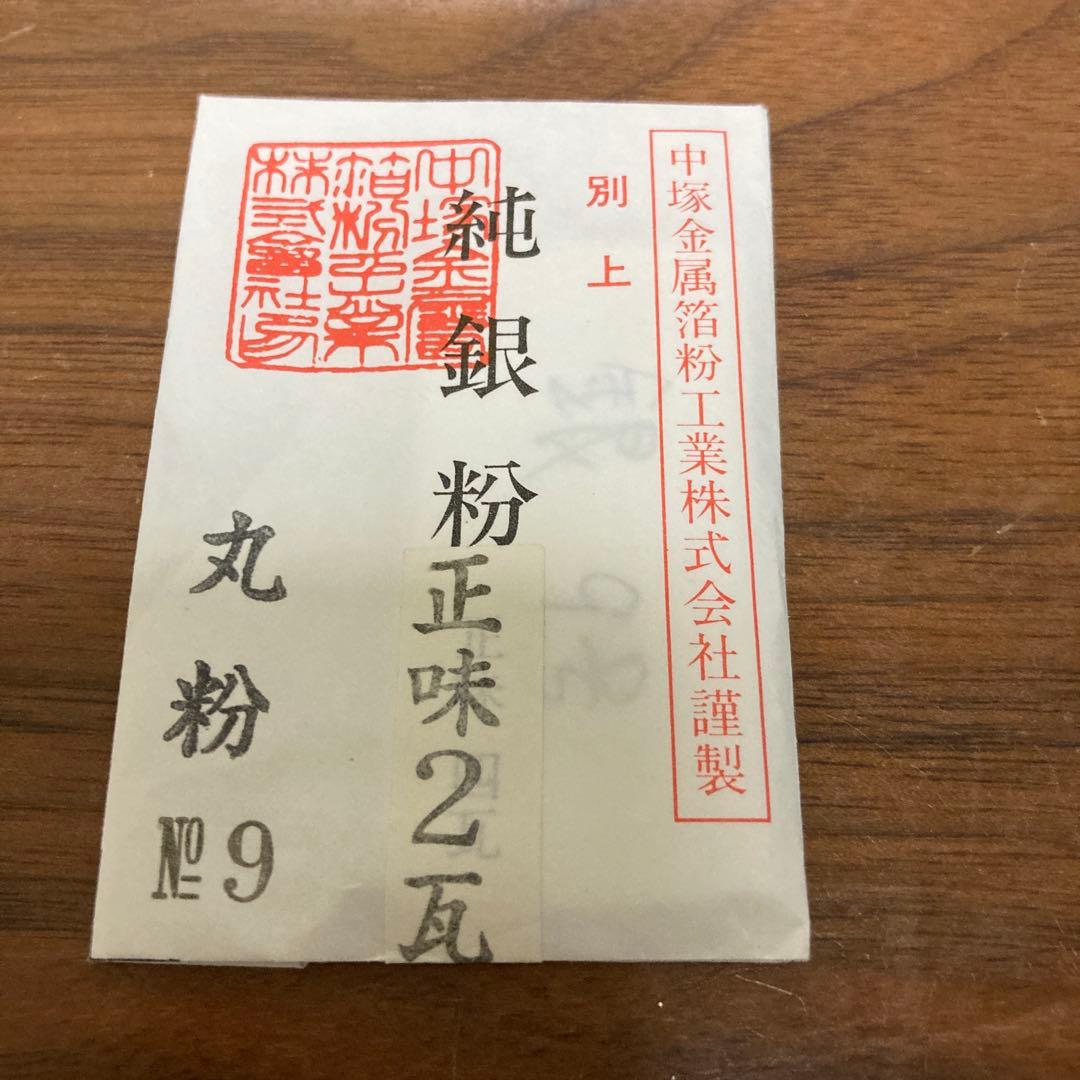 中塚金属箔粉工業株式会社謹製
別上
純銀粉
正味2瓦
中塚金属
箔粉工業
株式會社
丸粉
№9